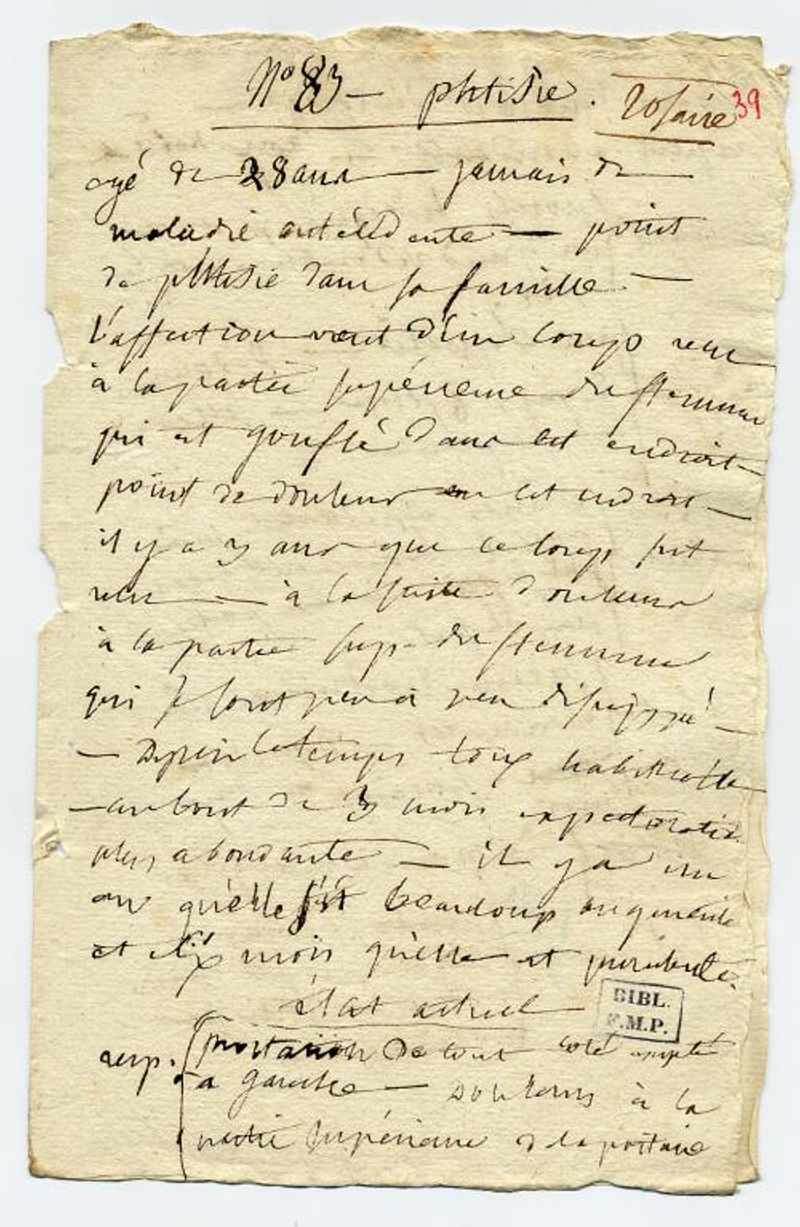 N° 83 — phtisie. Rosaire 39
agé de 28 ans — jamais de
maladie antécédente — point
de phthisie dans sa famille —
L'affection vient d'un coup recu
à la partie supérieure du sternum
qui est gonflé dans cet endroit
point de douleur en cet endroit —
il y a 3 ans que ce coup fut
recu — à la suite douleurs
à la partie sup. du sternum
qui se sont peu à peu
— Depuis ce temps toux habituelle
— au bout de 3 mois expectoration
plus abondante — il y a un
an qu'elle s'est beaucoup augmentée
et six mois qu'elle est purulente.
état actuel
resp. de tout coté excepté
a gauche — douleurs à la
partie supérieure de la poitrine
BIBL.
F.M.P.